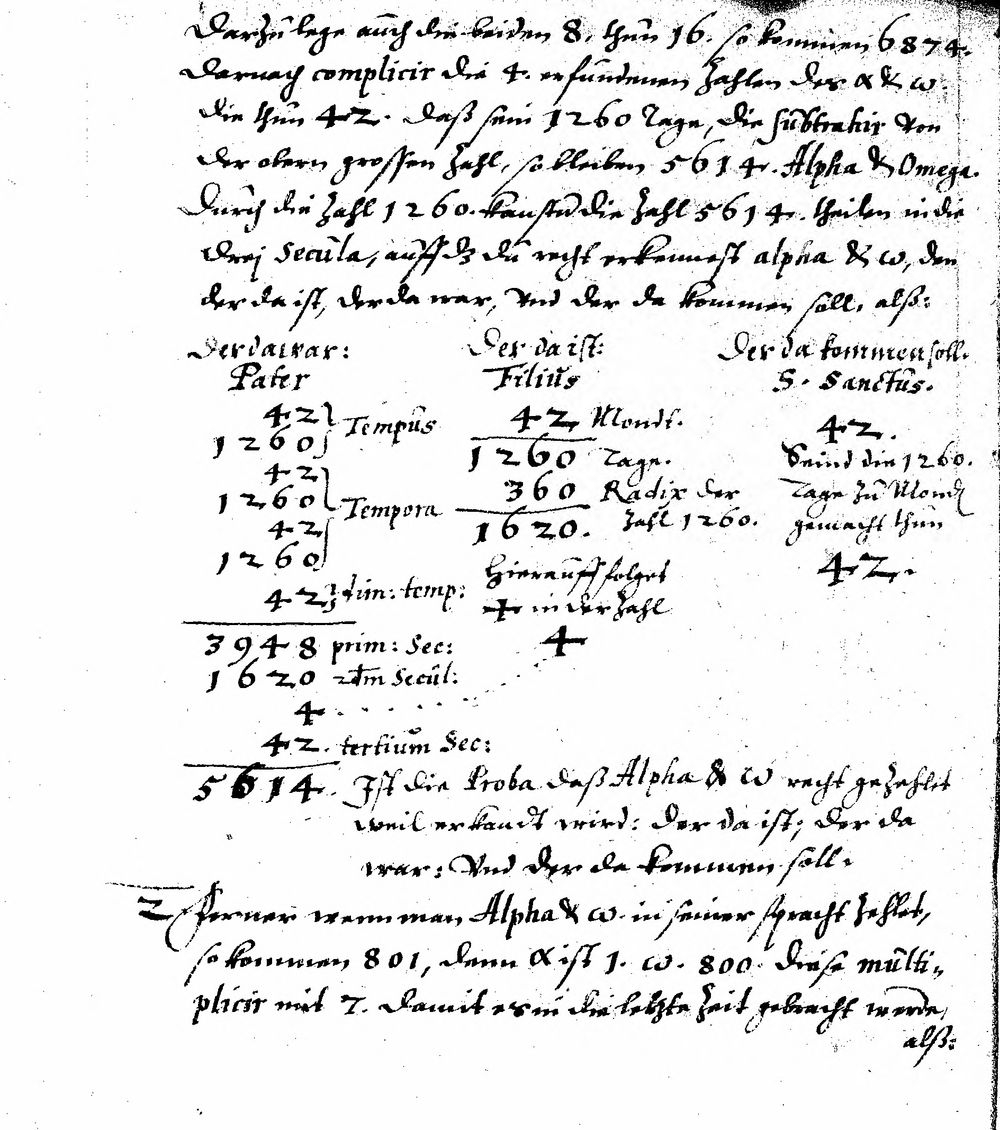 Darzu lege auch die beiden 8. thun 16. so kommen 6874.
Darnach complicir die 4. erfundenen Zahlen des α & ω.
die thun 42. daß sein 1260 Tage, die subtrahir von
der obern grossen Zahl, so bleiben 5614. Alpha & Omega.
Durch die Zahl 1260. kanstu die Zahl 5614. theilen in die
drej Secula, auff dz du recht erkennest alpha & ω, den
der da ist, der da war, vnd der da kommen soll, alß:
Der da war: Der da ist: Der da kommen soll.
Pater Filius S. Sanctus.
42 Tempus 42 Mondt. 42.
1260 1260 Tage. Seind die 1260.
42
1260 Tempora 360 Radix der Tage zu Mond
42 1620. Zahl 1260. gemacht thun
1260 Hierauff folget 42.
42 dim: temp: 4 in der Zahl
3948 prim: Sec: 4
1620 2dm Secul:
4 . . . . .
42. tertium Sec:
5614. Ist die Proba daß Alpha & ω recht gezehlet
weil erkandt wird: der da ist, der da
war: Vnd der da kommen soll.
2 Ferner wenn man Alpha & ω. in seiner spracht zehlet,
so kommen 801, denn α ist 1. ω. 800. diese multi-
plicir mit 7. damit es in die letzte Zeit gebracht werde,
alß: